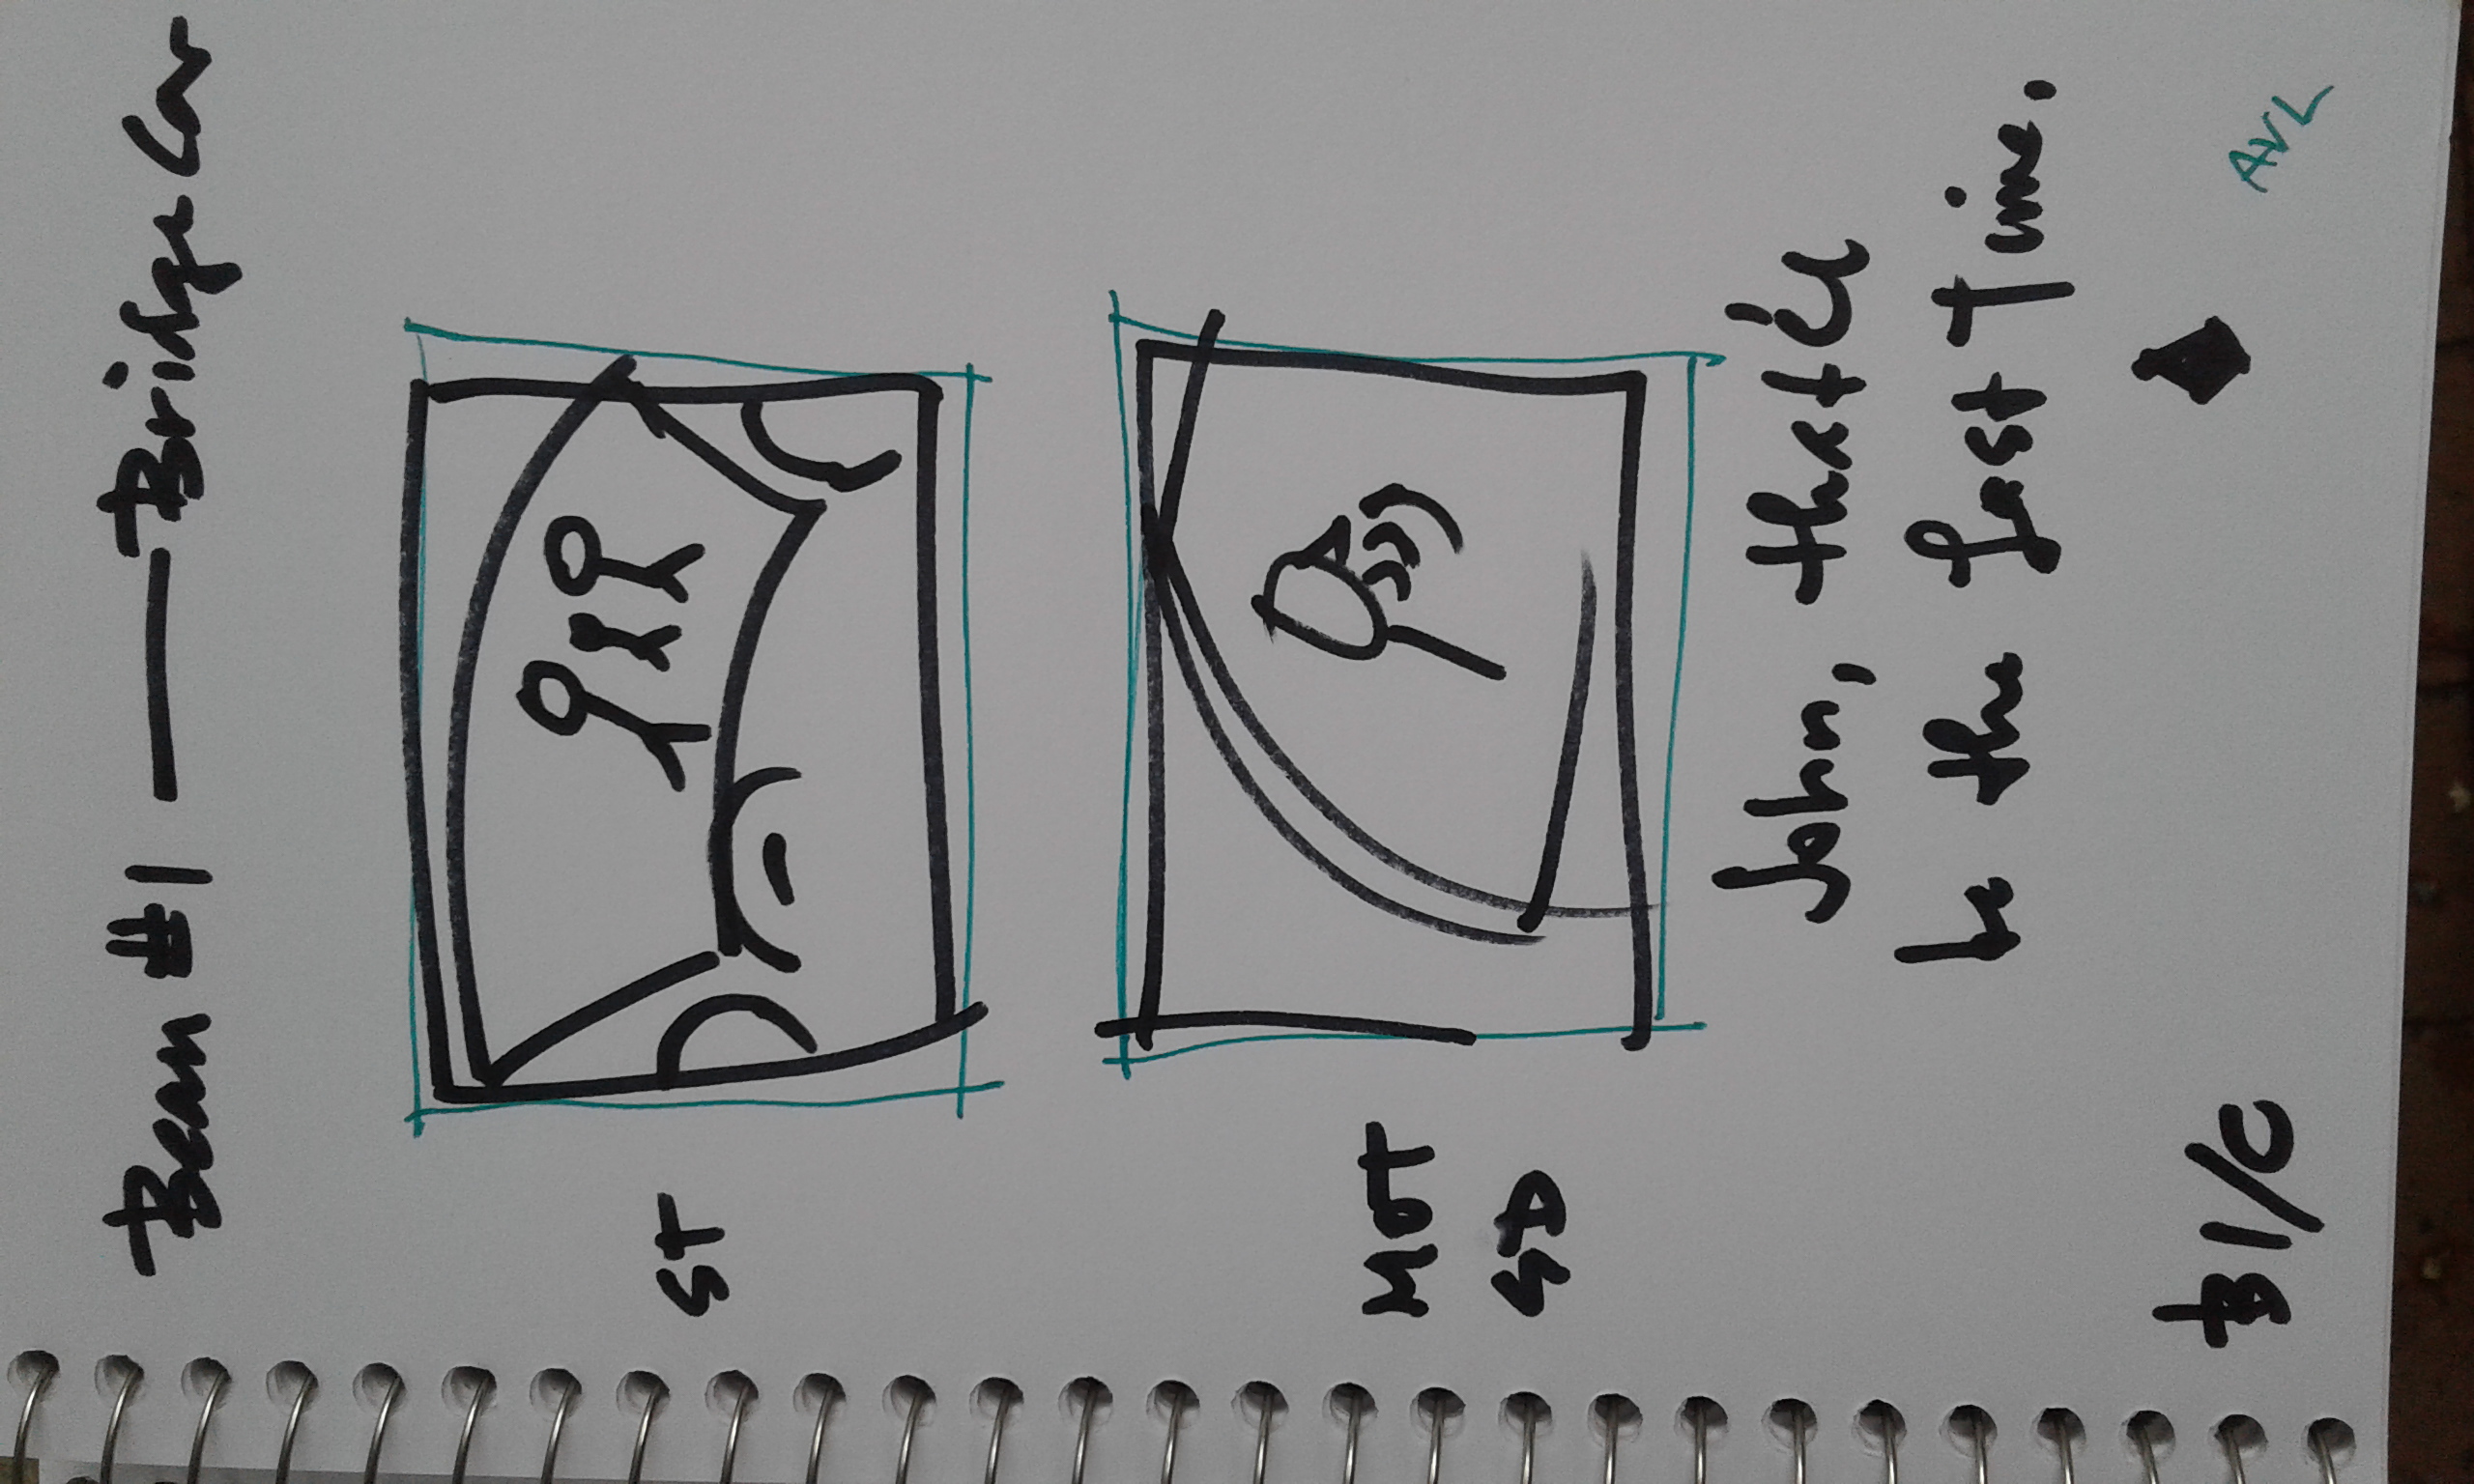 Bean #1 — Bridge Car
ST
MOT
SD
John, that'll
be the Last Time.
B1/C
AVL